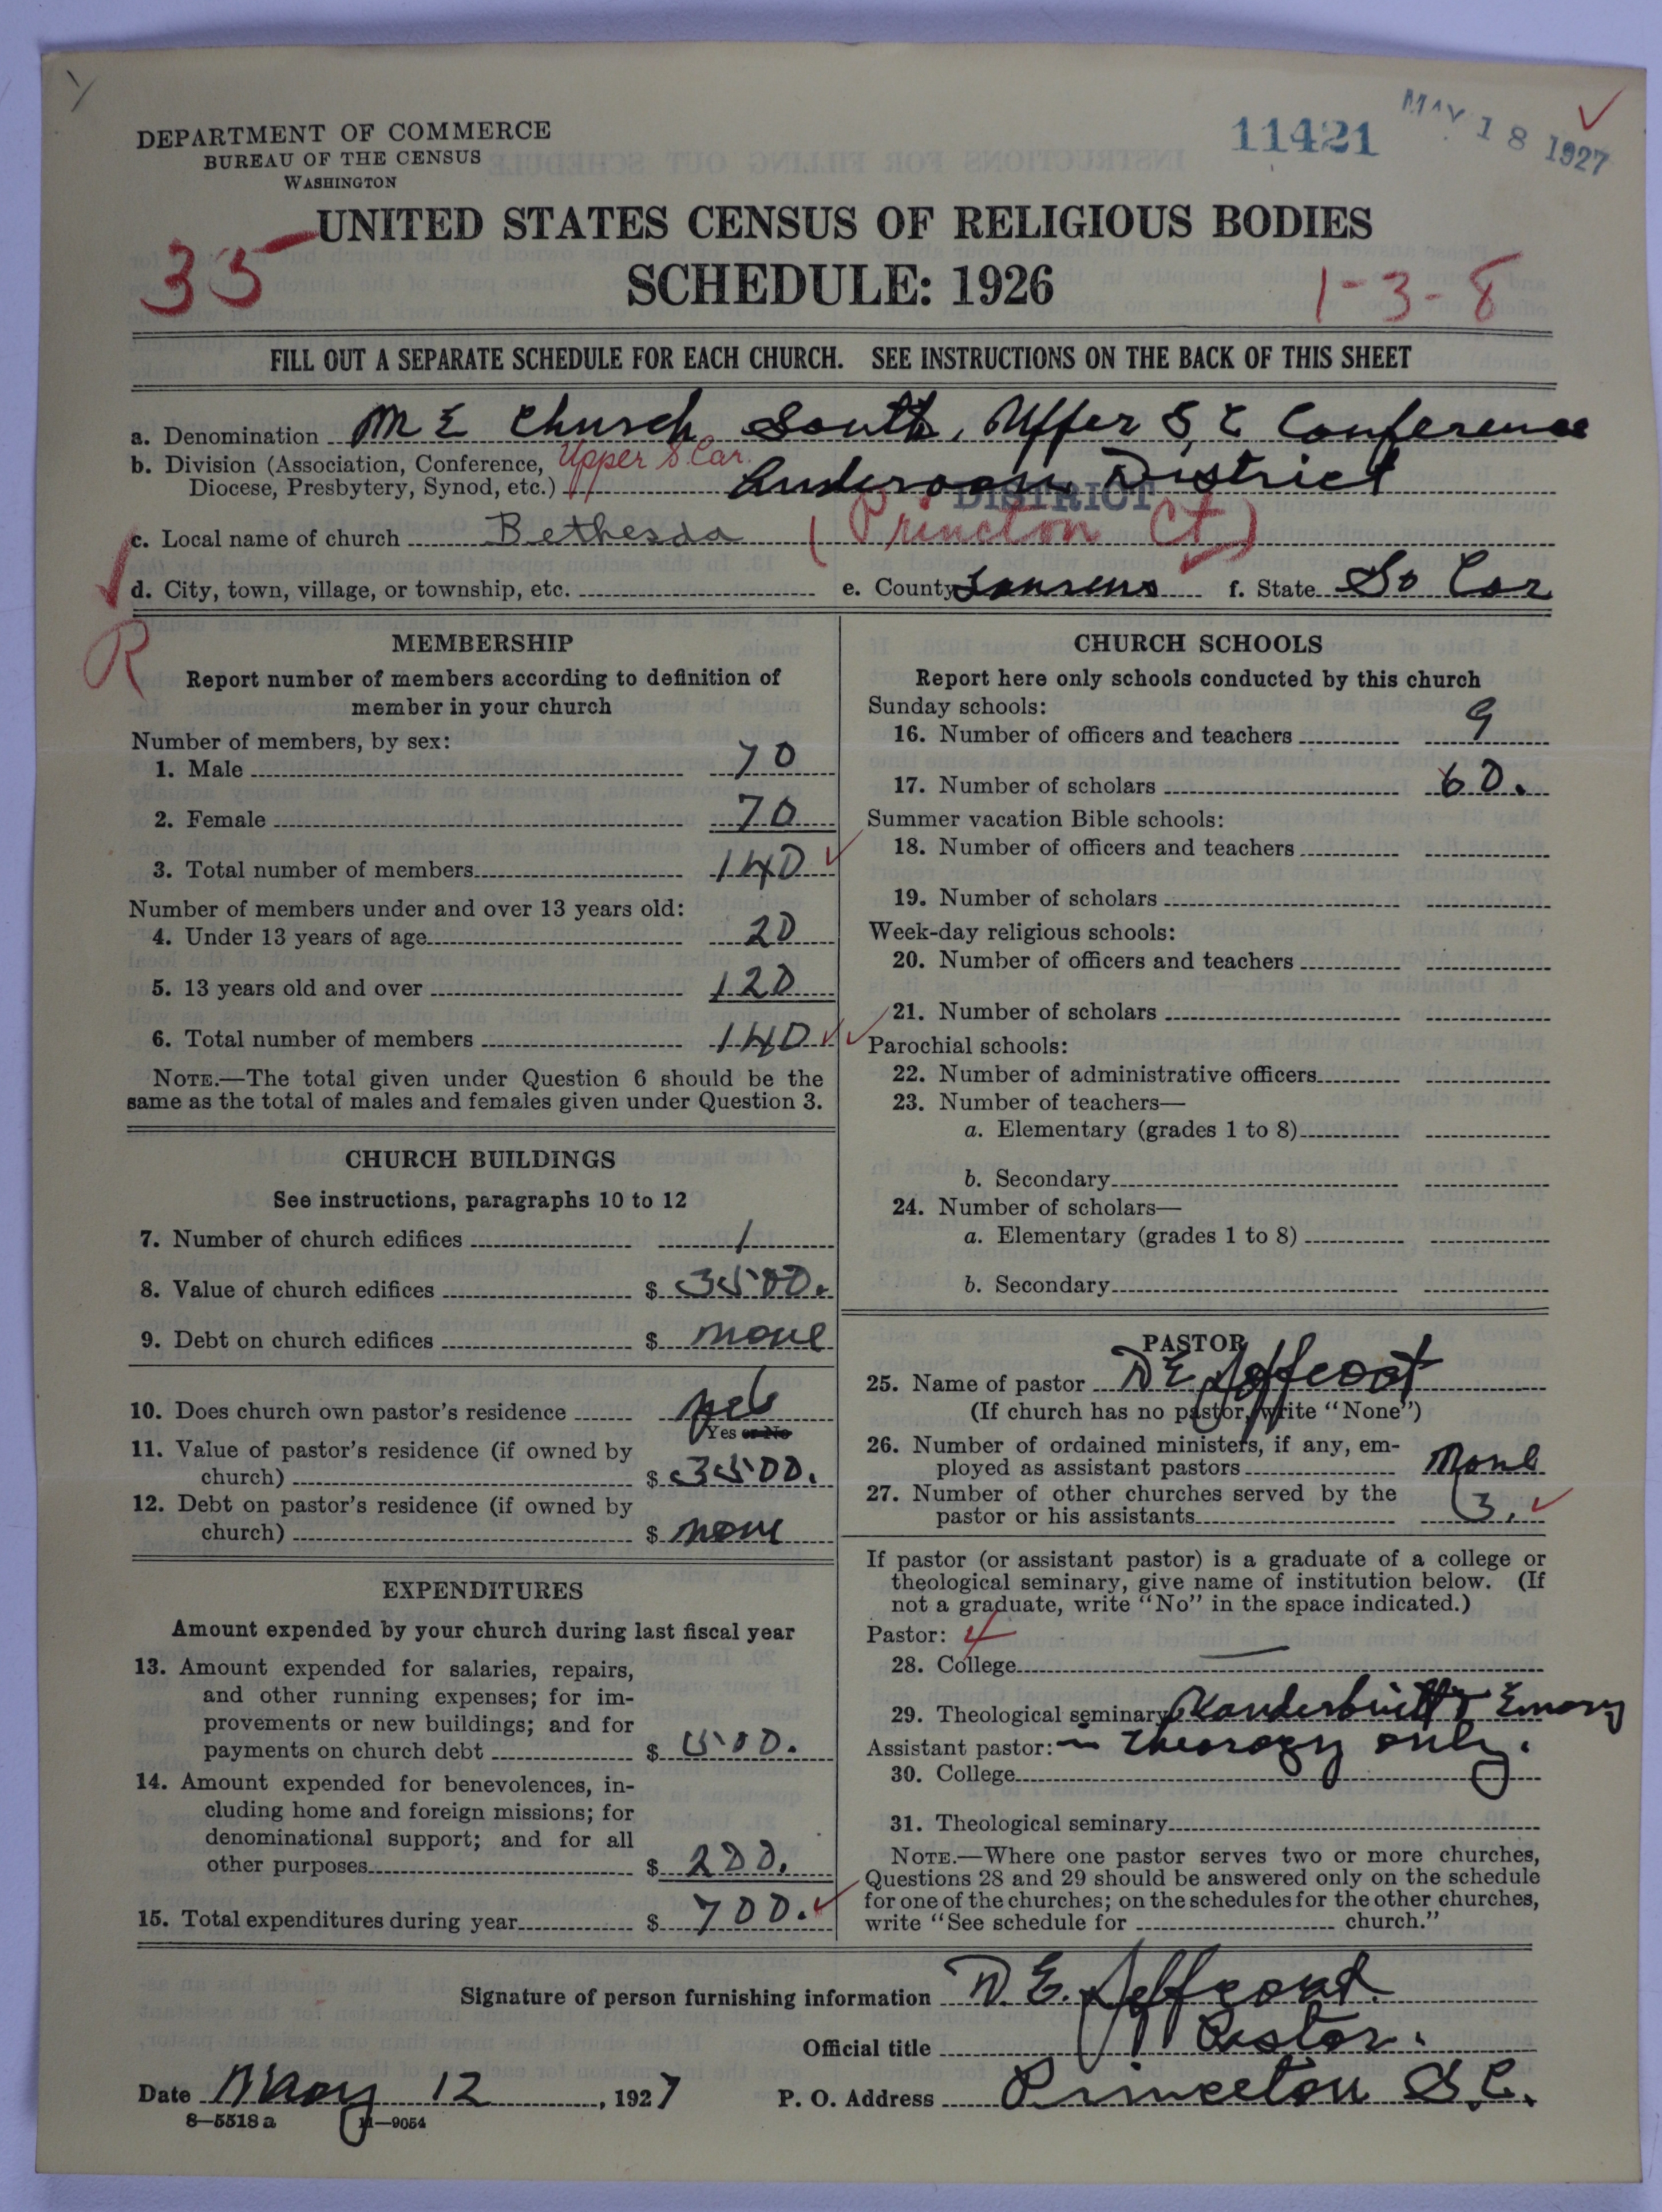 DEPARTMENT OF COMMERCE
BUREAU OF THE CENSUS
WASHINGTON
11421
MAY 18 1927
UNITED STATES CENSUS OF RELIGIOUS BODIES
SCHEDULE: 1926
35
1-3-8
FILL OUT A SEPARATE SCHEDULE FOR EACH CHURCH. SEE INSTRUCTIONS ON THE BACK OF THIS SHEET
a. Denomination M E Church South, Upper S C Conference
b. Division (Association, Conference, Upper S. Car.
Diocese, Presbytery, Synod, etc.) Anderson District
DISTRICT
c. Local name of church Bethesda (Princton Ct)
d. City, town, village, or township, etc. e. County Laurens f. State So Car
R
MEMBERSHIP
Report number of members according to definition of
member in your church
Number of members, by sex:
1. Male 70
2. Female 70
3. Total number of members 140
Number of members under and over 13 years old:
4. Under 13 years of age 20
5. 13 years old and over 120
6. Total number of members 140
NOTE.—The total given under Question 6 should be the
same as the total of males and females given under Question 3.
CHURCH BUILDINGS
See instructions, paragraphs 10 to 12
7. Number of church edifices 1
8. Value of church edifices $ 3500.
9. Debt on church edifices $ none
10. Does church own pastor's residence yes
Yes or No
11. Value of pastor's residence (if owned by
church) $ 3500.
12. Debt on pastor's residence (if owned by
church) $ none
EXPENDITURES
Amount expended by your church during last fiscal year
13. Amount expended for salaries, repairs,
and other running expenses; for im-
provements or new buildings; and for
payments on church debt $ 500.
14. Amount expended for benevolences, in-
cluding home and foreign missions; for
denominational support; and for all
other purposes $ 200.
15. Total expenditures during year $ 700.
CHURCH SCHOOLS
Report here only schools conducted by this church
Sunday schools:
16. Number of officers and teachers 9
17. Number of scholars 60.
Summer vacation Bible schools:
18. Number of officers and teachers
19. Number of scholars
Week-day religious schools:
20. Number of officers and teachers
21. Number of scholars
Parochial schools:
22. Number of administrative officers
23. Number of teachers—
a. Elementary (grades 1 to 8)
b. Secondary
24. Number of scholars—
a. Elementary (grades 1 to 8)
b. Secondary
PASTOR
25. Name of pastor D E Jeffcoat
(If church has no pastor, write "None")
26. Number of ordained ministers, if any, em-
ployed as assistant pastors None
27. Number of other churches served by the
pastor or his assistants 3.
If pastor (or assistant pastor) is a graduate of a college or
theological seminary, give name of institution below. (If
not a graduate, write "No" in the space indicated.)
Pastor: 4
28. College —
29. Theological seminary Vanderbuilt & Emory
Assistant pastor: – Theorogy only.
30. College
31. Theological seminary
NOTE.—Where one pastor serves two or more churches,
Questions 28 and 29 should be answered only on the schedule
for one of the churches; on the schedules for the other churches,
write "See schedule for church."
Signature of person furnishing information D. E. Jeffcoat
Official title Pastor.
Date May 12, 1927 P. O. Address Princeton S.C.
8—5518 a 11—9054